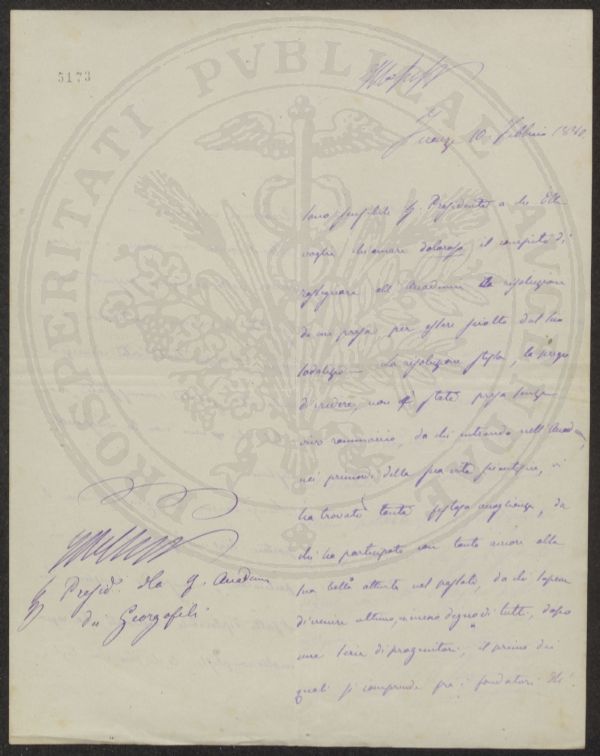 5173
PROSPERITATI PVBLICAE AVGENDAE
10 Febbraio
Sono sensibile Sig. Presidente a che Ella
voglia chiamare doloroso il compito di
rassegnare all' Accademia la risoluzione
da me presa per essere sciolto dal suo
sodalizio — La risoluzione stessa, la prego
di credere, non è stata presa senza
vivo rammarico, da chi entrando nell' Accademia,
nei primordi della sua vita scientifica, vi
ha trovato tanta accoglienza, da
chi ha partecipato con tanto amore alla
sua bella attività nel passato, da chi sapeva
di venire ultimo, e meno degno di tutti, dopo
una serie di progenitori, il primo dei
quali si comprende fra i fondatori
Sig. Presid. della R. Accadem
dei Georgofili